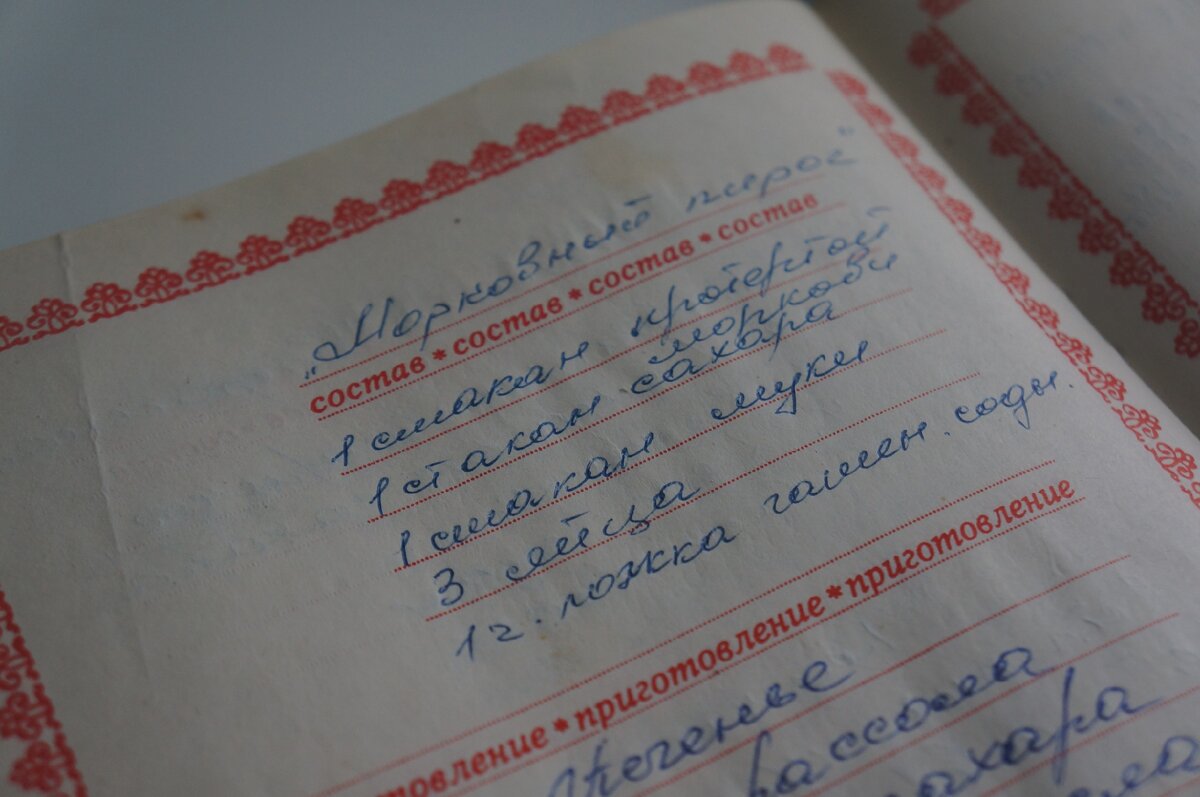 "Морковный пирог"
состав * состав * состав * состав
1 стакан протертой
моркови
1 стакан сахара
1 стакан муки
3 яйца
1 ч. ложка гашен. соды.
товление * приготовление * приготовление
Печенье
рассола
сахара